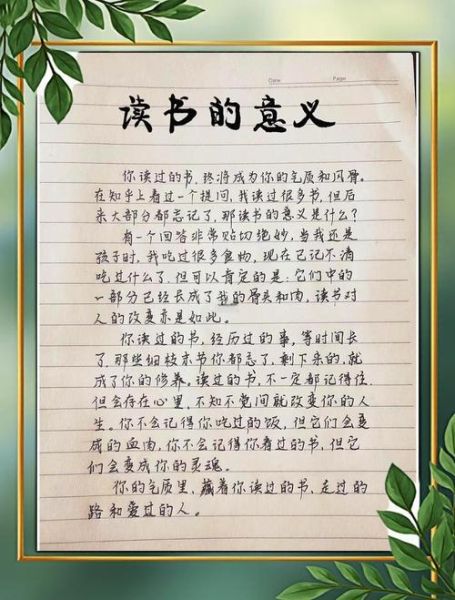 Date: Page:
读书的意义
你读过的书,终将成为你的气质和风骨。
在知乎上看过一个提问,我读过很多书,但后
来大部分都忘记了,那读书的意义是什么?
有一个回答非常贴切绝妙,当我还是
孩子时,我吃过很多食物,现在已记不清
吃过什么了.但可以肯定的是:它们中的
一部分已经长成了我的骨头和肉,读书对
人的改变亦是如此。
你读过的书,经历过的事,等时间长
了.那些细枝末节你都忘了,剩下来的,就
成了你的修养。读过的书,不一定都记得住.
但会存在心里,不知不觉间就改变你的人
生。你不会记得你吃过的饭,但它们会变
成的血肉,你不会记得你看过的书,但它
们会变成你的灵魂。
你的气质里,藏着你读过的书、走过的
路和爱过的人。